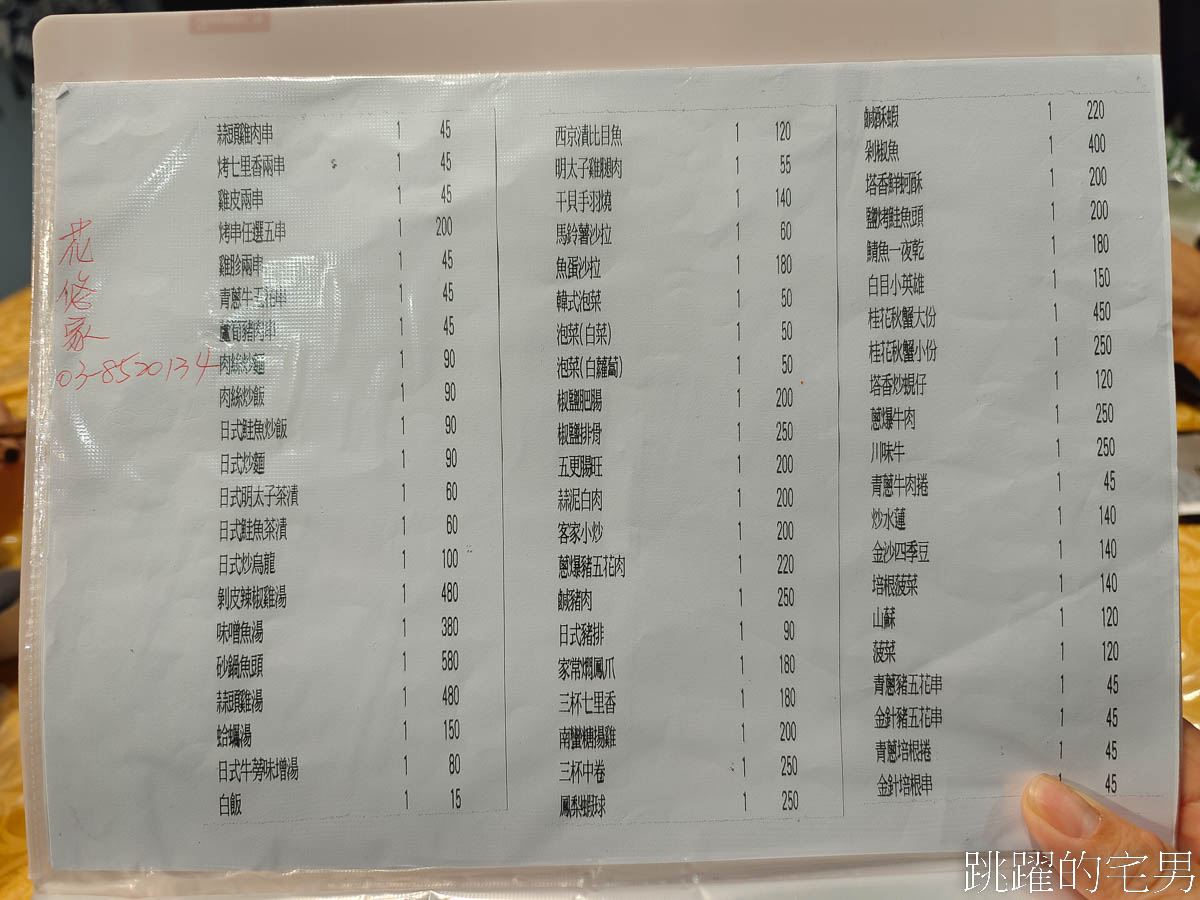 花
悠
家
03-8520134
蒜頭雞肉串 1 45
烤七里香兩串 1 45
雞皮兩串 1 45
烤串任選五串 1 200
雞胗兩串 1 45
青蔥牛五花串 1 45
蘆筍豬肉串 1 45
肉絲炒麵 1 90
肉絲炒飯 1 90
日式鮭魚炒飯 1 90
日式炒麵 1 90
日式明太子茶漬 1 60
日式鮭魚茶漬 1 60
日式炒烏龍 1 100
剝皮辣椒雞湯 1 480
味噌魚湯 1 380
砂鍋魚頭 1 580
蒜頭雞湯 1 480
蛤蠣湯 1 150
日式牛蒡味增湯 1 80
白飯 1 15
西京漬比目魚 1 120
明太子雞腿肉 1 55
干貝手羽燒 1 140
馬鈴薯沙拉 1 60
魚蛋沙拉 1 180
韓式泡菜 1 50
泡菜(白菜) 1 50
泡菜(白蘿蔔) 1 50
椒鹽肥腸 1 200
椒鹽排骨 1 250
五更腸旺 1 200
蒜泥白肉 1 200
客家小炒 1 200
蔥爆豬五花肉 1 220
鹹豬肉 1 250
日式豬排 1 90
家常燜鳳爪 1 180
三杯七里香 1 180
南蠻糖揚雞 1 200
三杯中卷 1 250
鳳梨蝦球 1 250
鹹酥蝦 1 220
剁椒魚 1 400
塔香鮮蚵酥 1 200
鹽烤鮭魚頭 1 200
鯖魚一夜乾 1 180
白目小英雄 1 150
桂花秋蟹大份 1 450
桂花秋蟹小份 1 250
塔香炒蜆仔 1 120
蔥爆牛肉 1 250
川味牛 1 250
青蔥牛肉捲 1 45
炒水蓮 1 140
金沙四季豆 1 140
培根菠菜 1 140
山蘇 1 120
菠菜 1 120
青蔥豬五花串 1 45
金針豬五花串 1 45
青蔥培根捲 1 45
金針培根串 1 45
跳躍的宅男